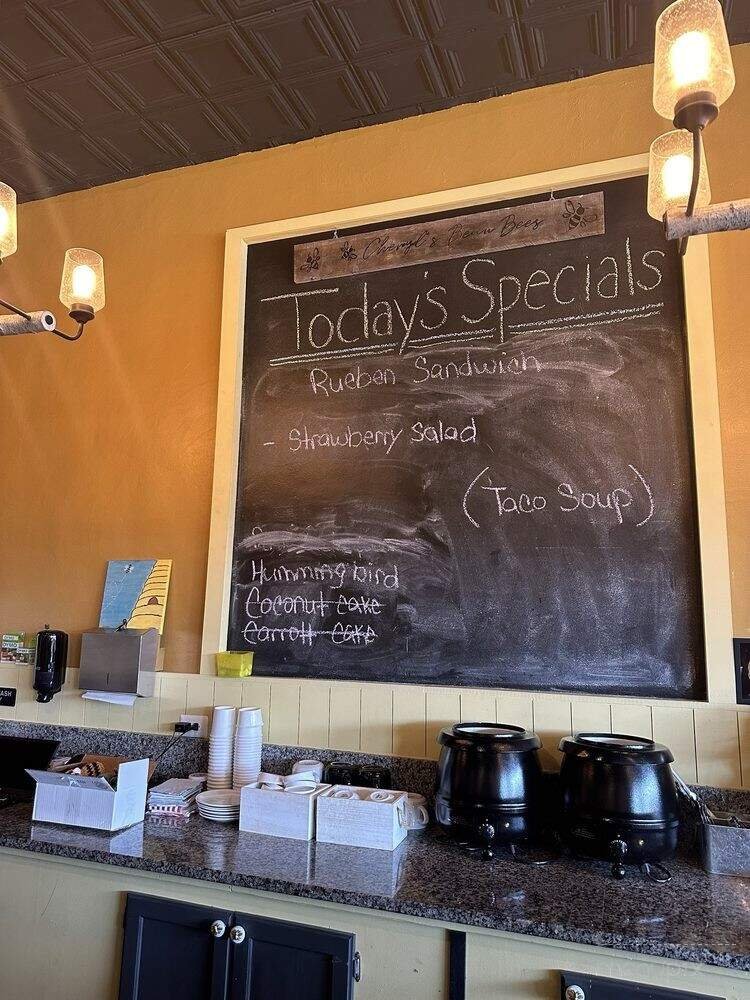 Cheryl's Beau Bees
Today's Specials
Rueben Sandwich
- Strawberry Salad
(Taco Soup)
Hummingbird
Coconut cake
Carrott cake